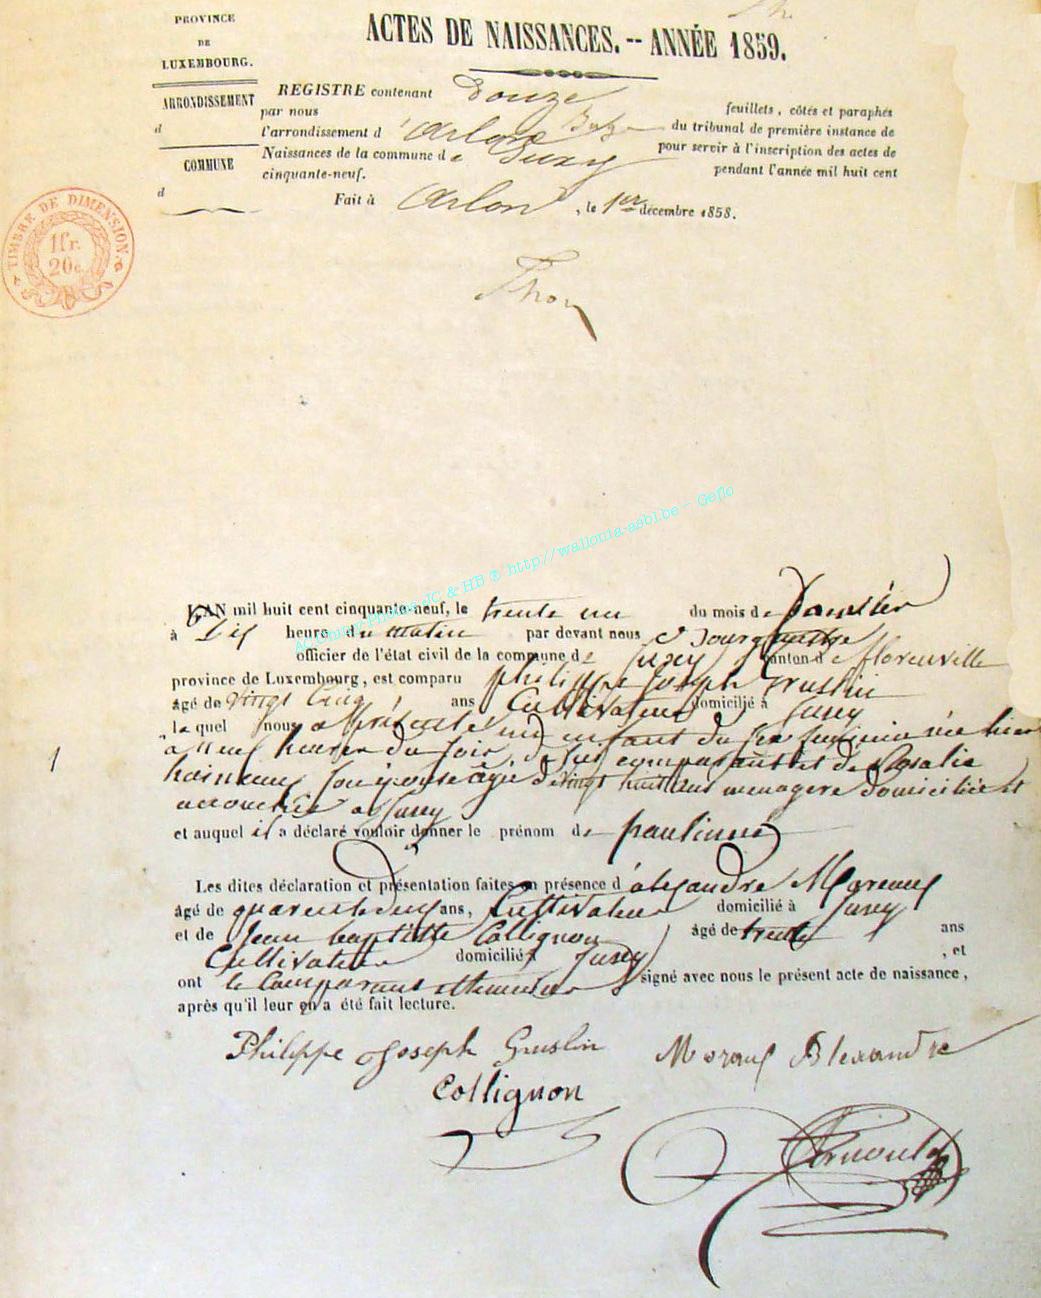 PROVINCE
DE
LUXEMBOURG.
ACTES DE NAISSANCES. -- ANNÉE 1859.
ARRONDISSEMENT
d
COMMUNE
d
REGISTRE contenant Douze feuillets, côtés et paraphés
par nous du tribunal de première instance de
l'arrondissement d'Arlon pour servir à l'inscription des actes de
Naissances de la commune de Suxy pendant l'année mil huit cent
cinquante-neuf.
Fait à Arlon, le 1er décembre 1858.
TIMBRE DE DIMENSION
1 fr.
20 c.
http://wallonia-asbl.be - Geflo
L'AN mil huit cent cinquante-neuf, le trente un du mois de Janvier
à Dix heure du matin par devant nous
officier de l'état civil de la commune de Suxy canton de florenville
province de Luxembourg, est comparu philippe joseph
âgé de vingt cinq ans Cultivateur domicilié à Suxy
, lequel nous a présenté un enfant du sex née hier
à neuf heures du soir, comparant et de Rosalie
son épouse âgé de vingt huit ans menagere domiciliée et
accouchée a Suxy
1
et auquel il a déclaré vouloir donner le prénom de
Les dites déclaration et présentation faites en présence d'alexandre
âgé de quarente deux ans, Cultivateur domicilié à Suxy
et de Jean baptiste Collignon âgé de trente ans
Cultivateur domicilié à Suxy , et
ont le Comparant et temoins signé avec nous le présent acte de naissance,
après qu'il leur en a été fait lecture.
Philippe Joseph Gruslin
Alexandre
Collignon